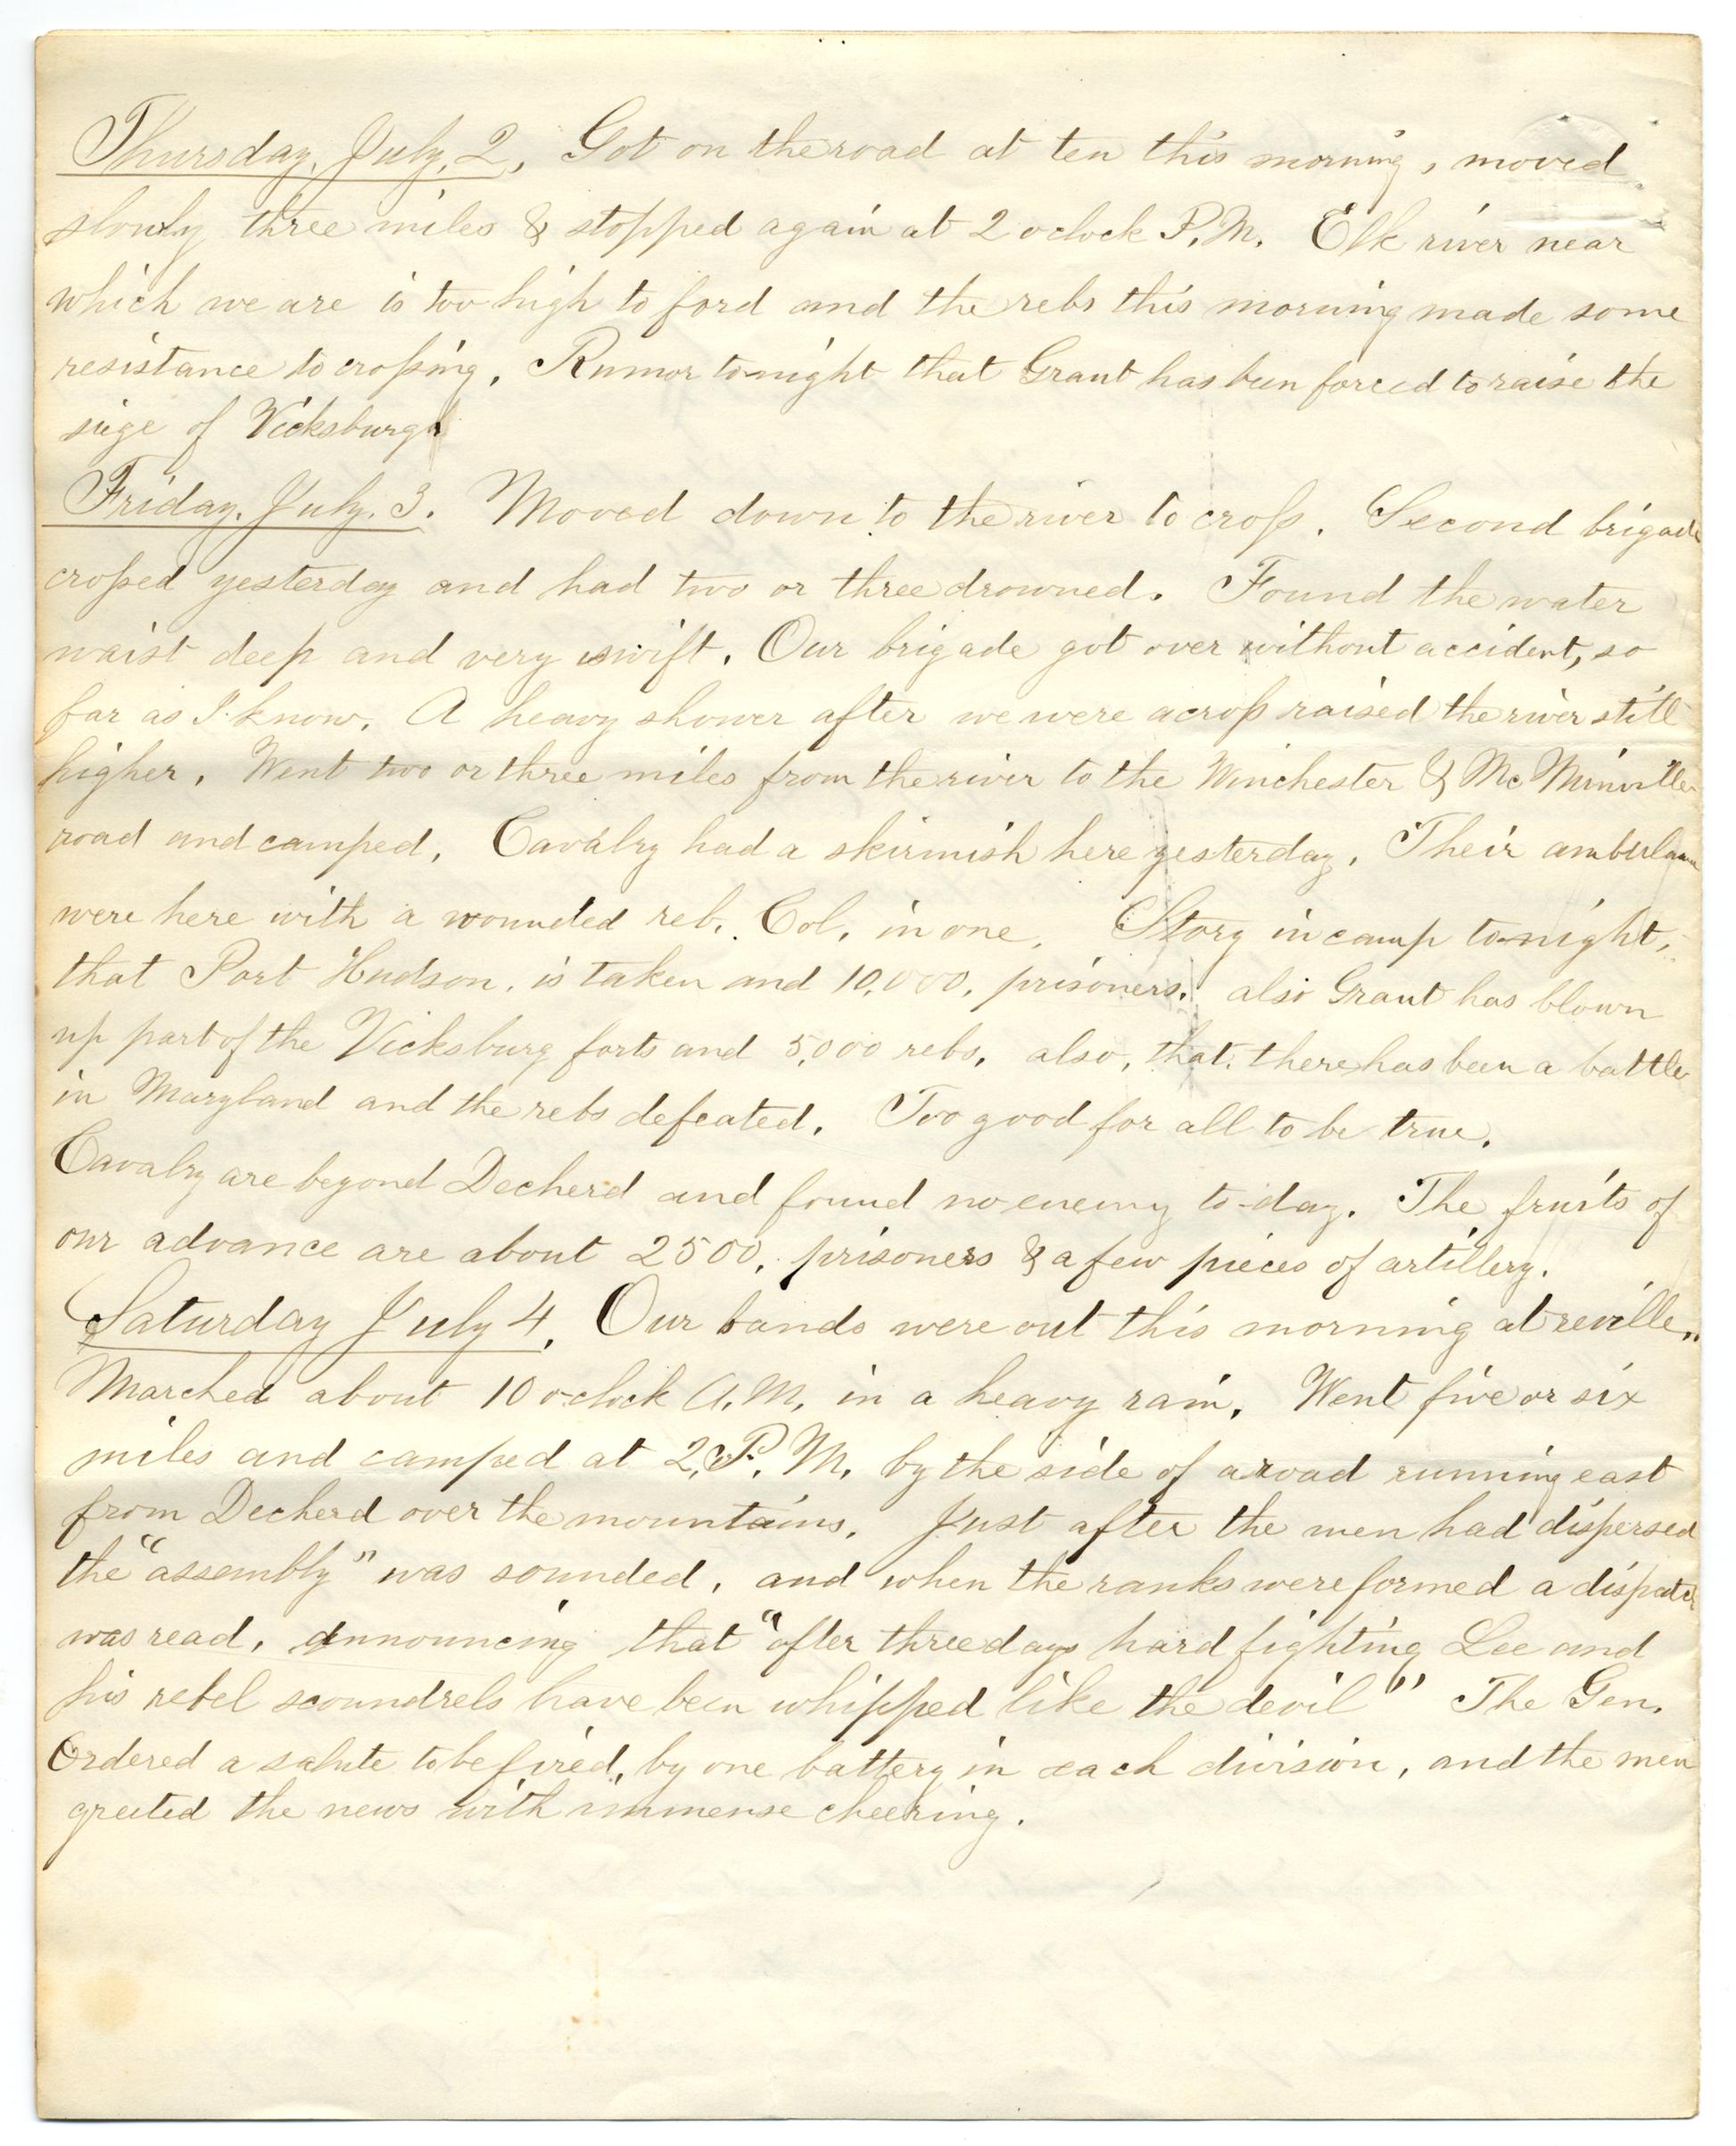 Thursday, July, 2, Got on the road at ten this morning, moved
slowly three miles & stopped again at 2 oclock P.M. Elk river near
which we are is too high to ford and the rebs this morning made some
resistance to croſsing. Rumor to-night that Grant has been forced to raise the
siege of Vicksburgh
Friday, July, 3. Moved down to the river to croſs. Second brigade
croſsed yesterday and had two or three drowned. Found the water
waist deep and very swift. Our brigade got over without accident, so
far as I know. A heavy shower after we were acroſs raised the river still
higher. Went two or three miles from the river to the Winchester & McMinville
road and camped. Cavalry had a skirmish here yesterday. Their
were here with a wounded reb. Col. in one. Story in camp to-night,
that Port Hudson, is taken and 10,000, prisoners. also Grant has blown
up part of the Vicksburg forts and 5,000 rebs, also, that, there has been a battle
in Maryland and the rebs defeated. Too good for all to be true.
Cavalry are beyond Decherd and found no enemy to-day. The fruits of
our advance are about 2500, prisoners & a few pieces of artillery.
Saturday July 4. Our bands were out this morning at reville.
Marched about 10 o-clock A.M. in a heavy rain. Went five or six
miles and camped at 2, P. M. by the side of a road running east
from Decherd over the mountains. Just after the men had dispersed
the "assembly" was sounded, and when the ranks were formed a dispatch
was read, announcing that "after three days hard fighting Lee and
his rebel scoundrels have been whipped like the devil" The Gen.
Ordered a salute to be fired, by one battery in each division, and the men
greeted the news with immense cheering.